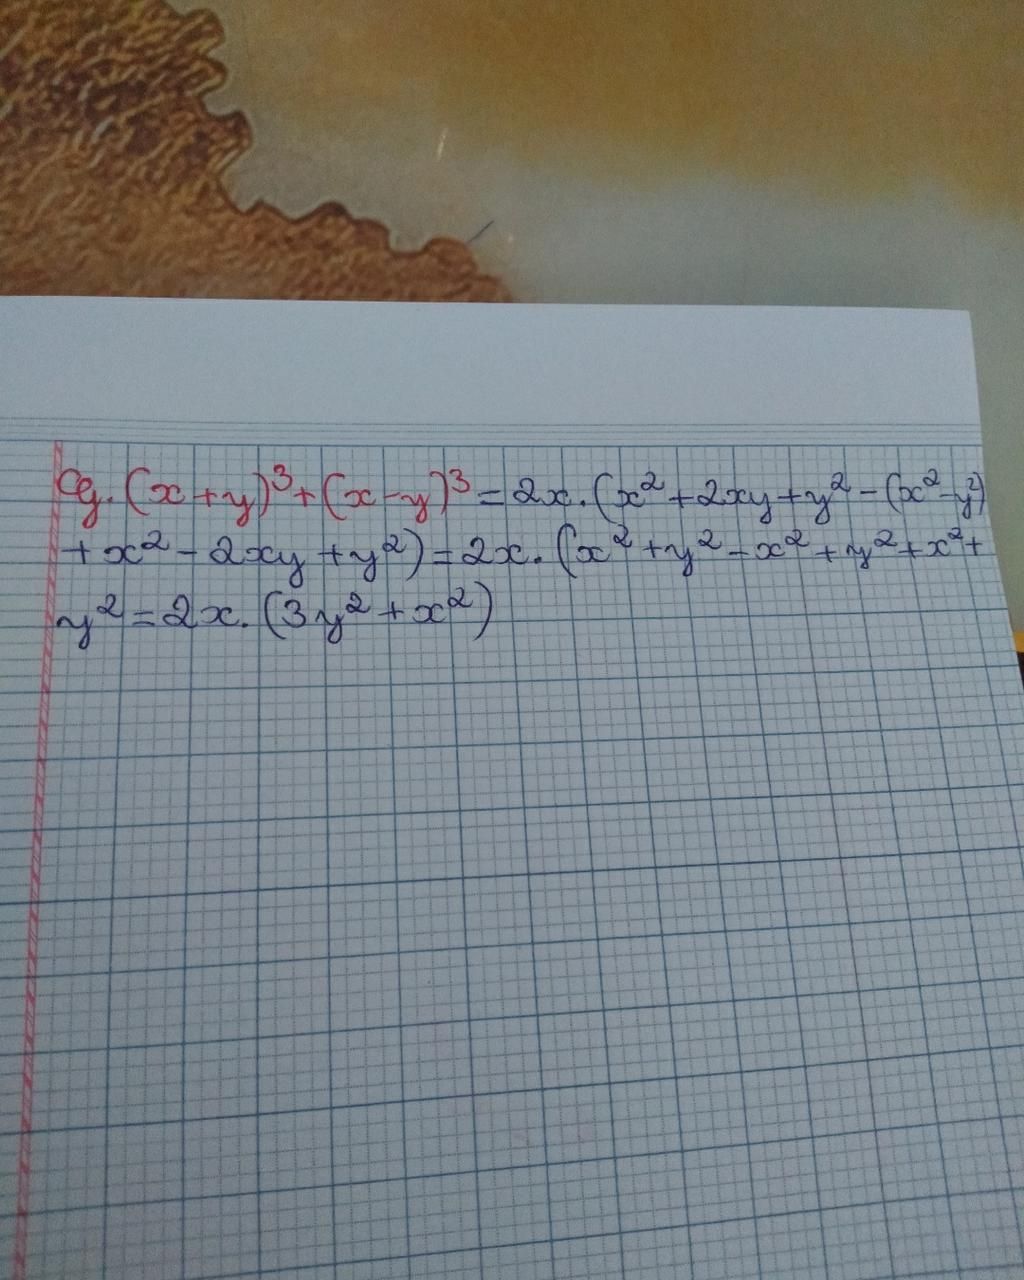 eg. (x+y)³+(x-y)³=2x.(x²+2xy+y²-(x²-y²)
+x²-2xy+y²)=2x.(x²+y²-x²+y²+x²+
y²=2x.(3y²+x²)